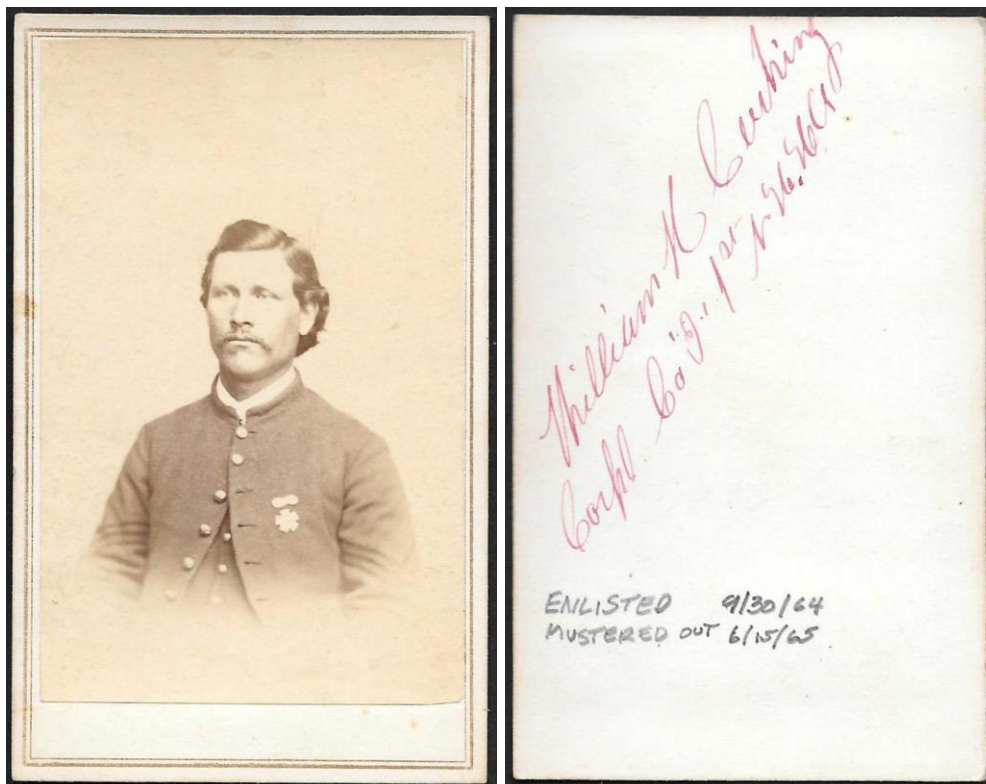 William Cushing
Corpl Co. 1st
ENLISTED 9/30/64
MUSTERED OUT 6/15/65